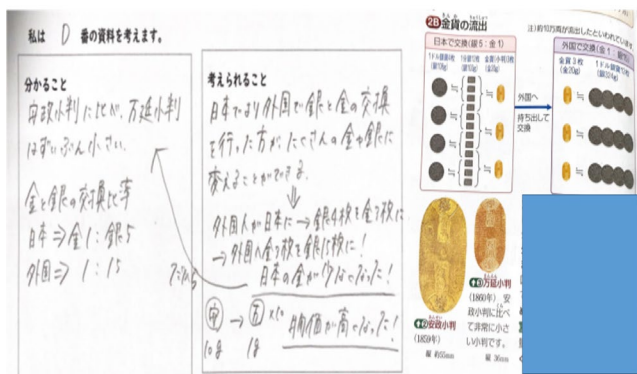 私は D 番の資料を考えます。
分かること
安政小判に比べ、万延小判
はずいぶん小さい。
金と銀の交換比率
日本⇒金1:銀5
外国⇒ 1:15
だから
考えられること
日本でより外国で銀と金の交換
を行った方が、たくさんの金や銀に
変えることができる。
⇓
外国人が日本に→銀4枚を金3枚に
→外国へ金3枚を銀12枚に!
日本の金が少なくなった!
10g
→
万
×10
1g
物価が高くなった!
2B 金貨の流出
注)約10万両が流出したといわれています
日本で交換(銀5:金1)
1ドル銀貨4枚
外国へ
持ち出して
交換
外国で交換
金貨3枚
(金20g)
安政小判
(1859年)
縦 約55mm
万延小判
(1860年) 安
政小判に比べ
て非常に小さ
い小判です。
縦 36mm